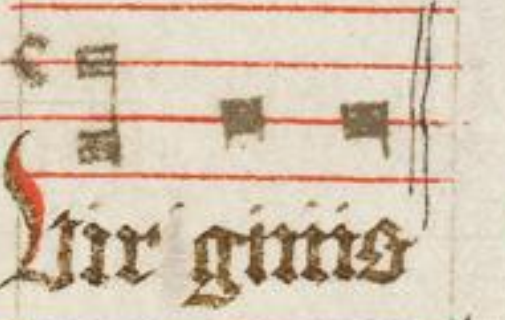 Vir ginis